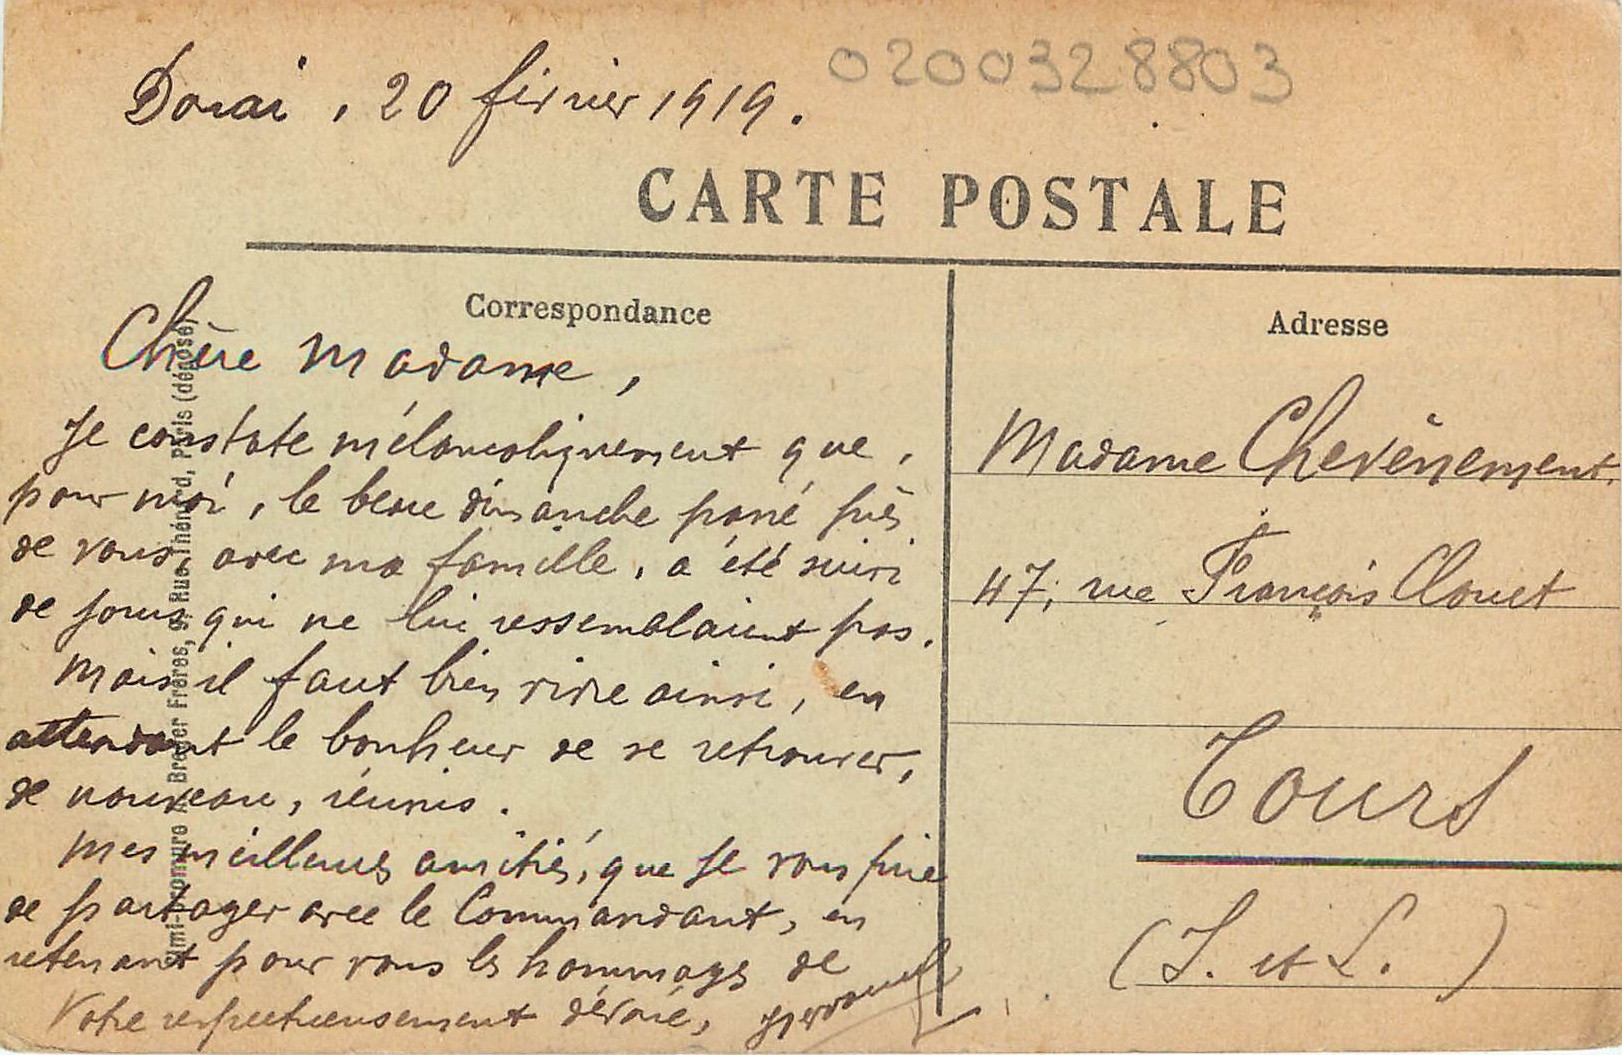 Douai, 20 février 1919.
0200328803
CARTE POSTALE
Correspondance
Adresse
Chère Madame,
Je constate mélancoliquement que,
pour moi, le beau dimanche passé près
de vous, avec ma famille, a été suivi
de jours qui ne lui ressemblaient pas.
Mais il faut bien vivre ainsi, en
attendant le bonheur de se retrouver,
de nouveau, réunis.
Mes meilleures amitiés, que je vous prie
de partager avec le Commandant, en
retenant pour vous les hommages de
Votre respectueusement dévoué,
Madame Chevènement.
47, rue François Clouet
Tours
(I. et L.)
Imp. Bromure A. Breger Frères, 9, Rue Thénard, Paris (déposé)